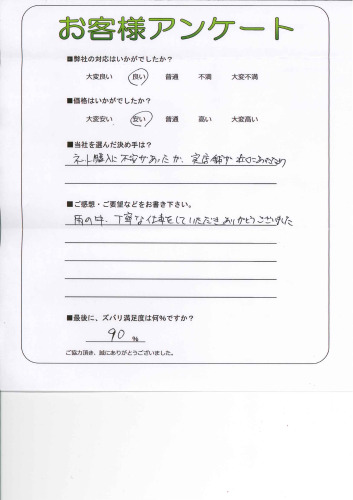 お客様アンケート
■弊社の対応はいかがでしたか？
大変良い 良い 普通 不満 大変不満
■価格はいかがでしたか？
大変安い 安い 普通 高い 大変高い
■当社を選んだ決め手は？
ネット購入に不安があったが、実店舗が
■ご感想・ご要望などをお書き下さい。
雨の中、丁寧な仕事をしていただきありがとうございました
■最後に、ズバリ満足度は何%ですか？
90 %
ご協力頂き、誠にありがとうございました。